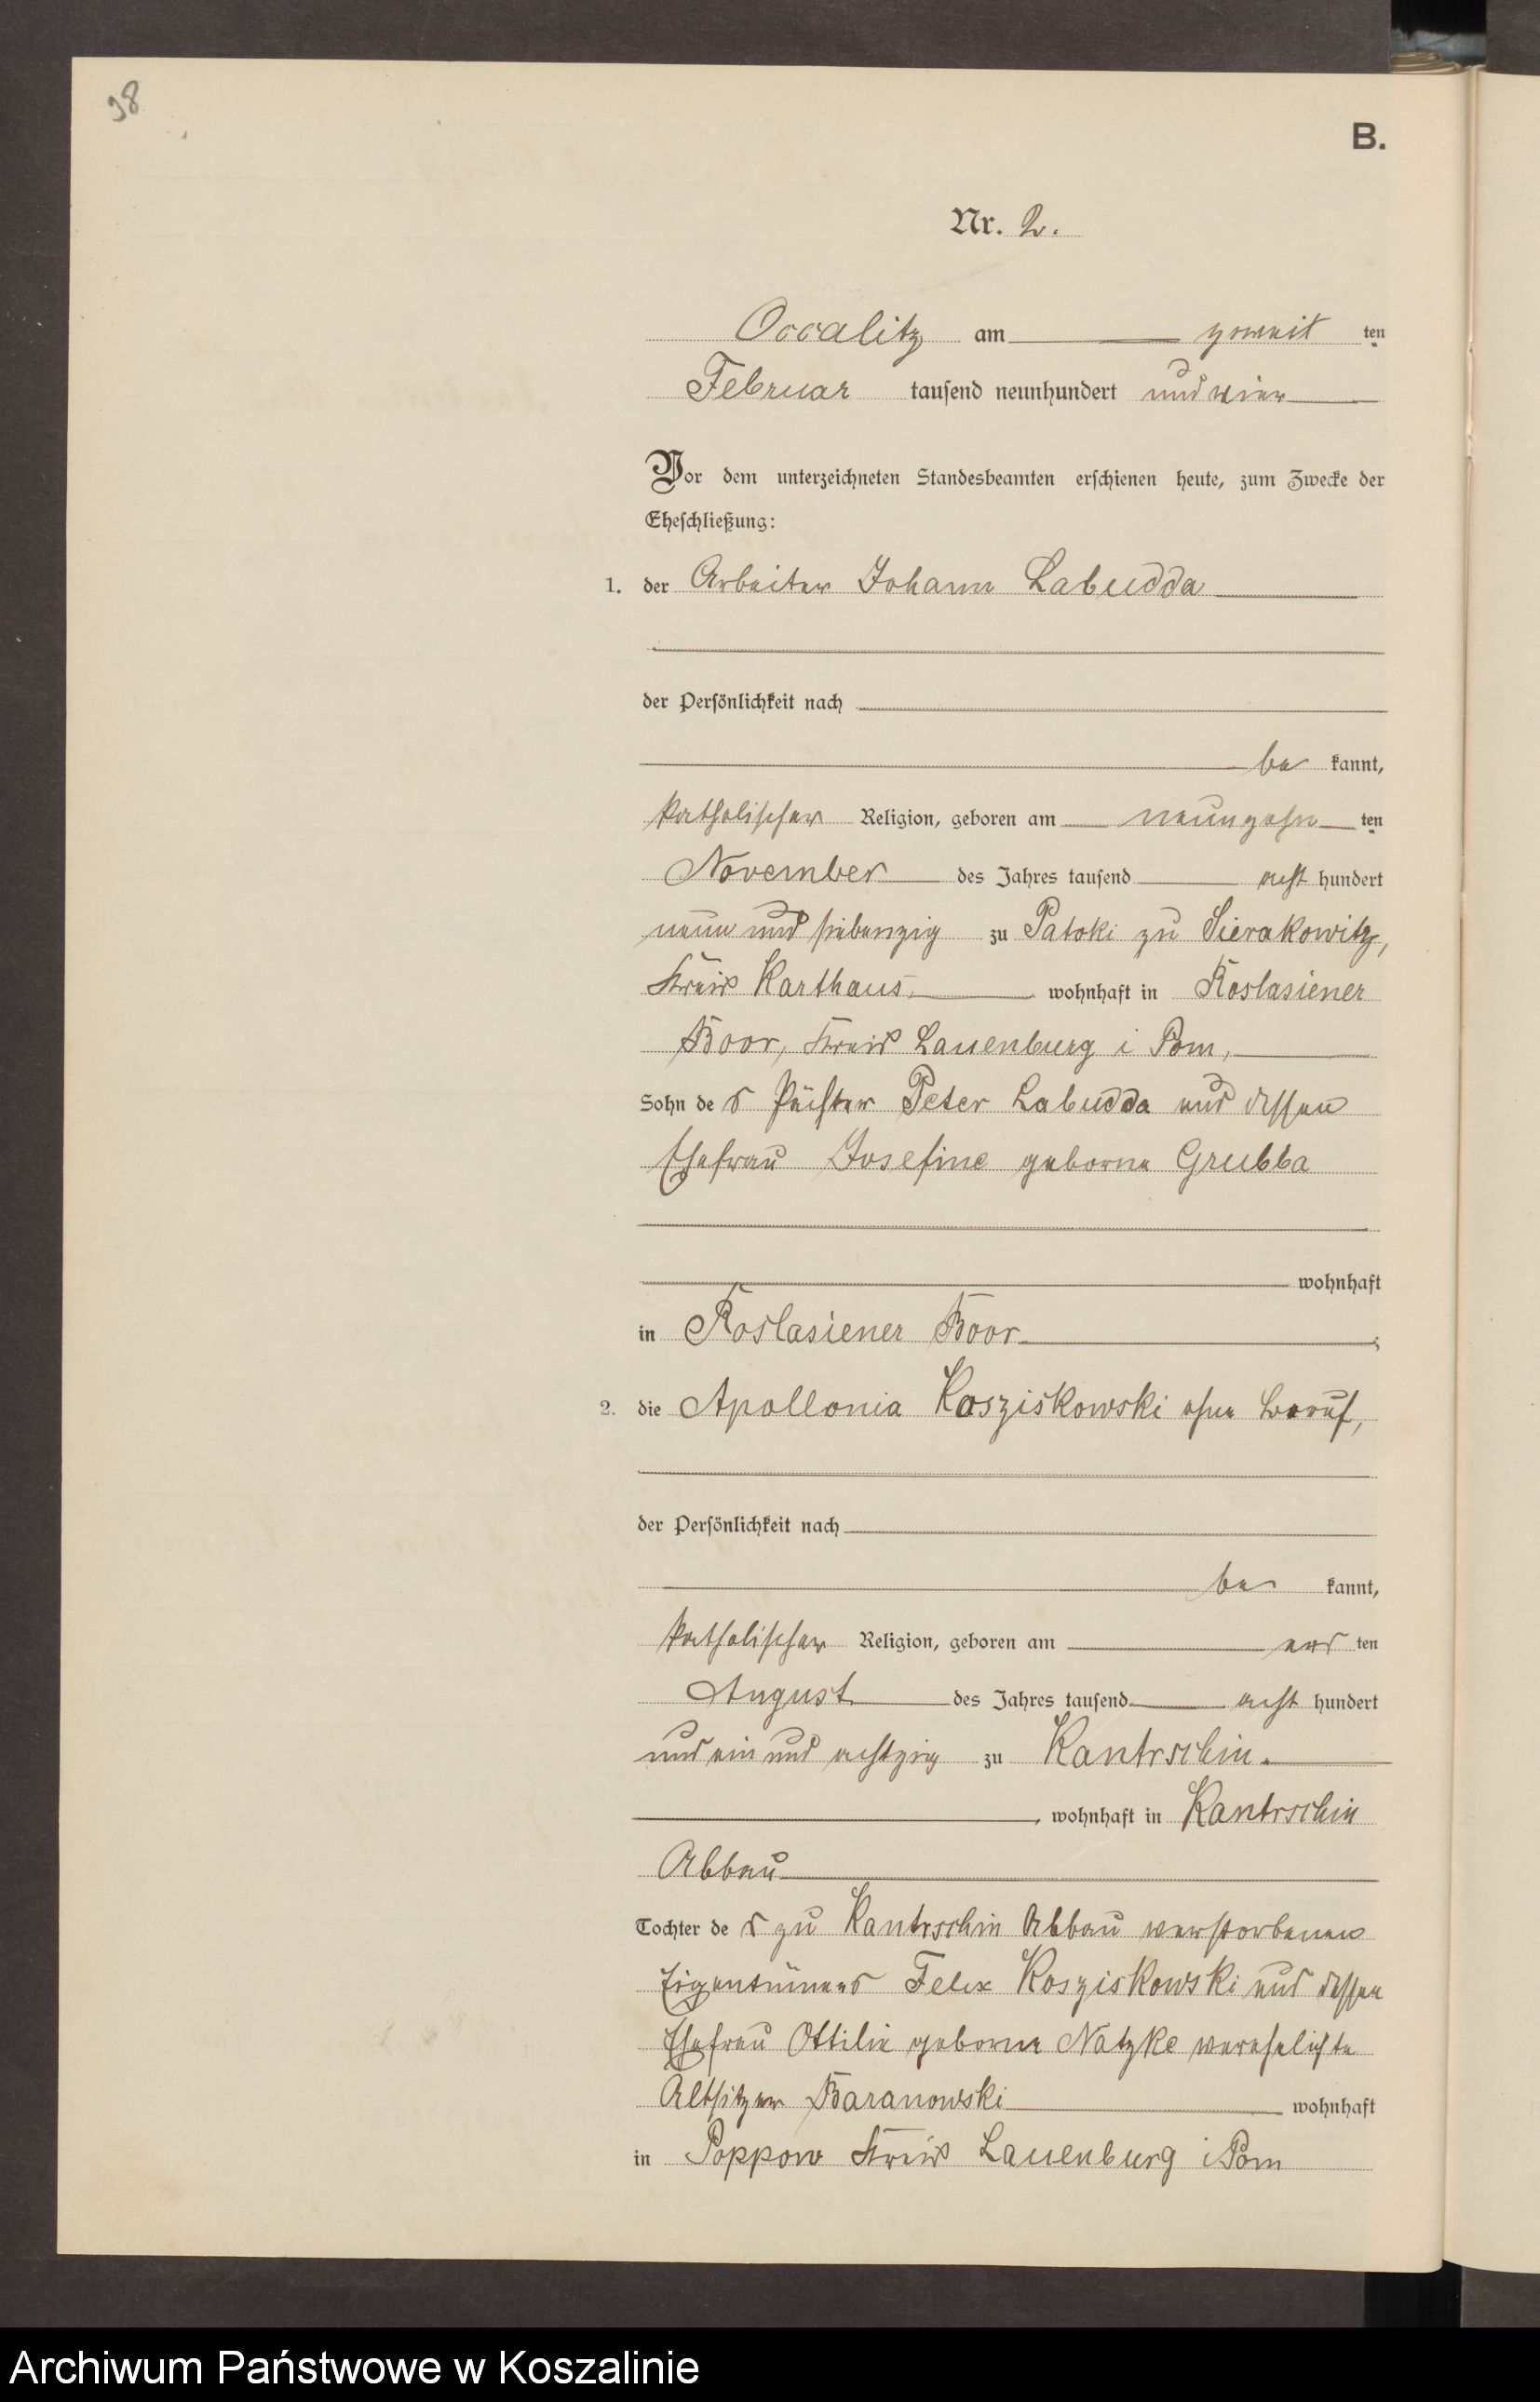 98
B.
Nr. 2.
Occalitz am zweit ten
Februar tausend neunhundert und vier
Vor dem unterzeichneten Standesbeamten erschienen heute, zum Zwecke der
Eheschließung:
1. der Arbeiter Johann Labudda
der Persönlichkeit nach
be kannt,
katholischer Religion, geboren am neunzehn ten
November des Jahres tausend acht hundert
neun und siebenzig zu Patoki zu Sierakowitz,
Kreis Karthaus, wohnhaft in Roslasiener
Boor, Kreis Lauenburg i Pom,
Sohn de s Pächter Peter Labudda und dessen
Ehefrau Josefine geborne Grubba
wohnhaft
in Roslasiener Boor ;
2. die Apollonia Kosziskowski ohne Beruf,
der Persönlichkeit nach
be kannt,
katholischer Religion, geboren am ers ten
August des Jahres tausend acht hundert
und ein und achtzig zu Kantrschin.
, wohnhaft in Kantrschin
Abbau
Tochter de s zu Kantrschin Abbau verstorbenen
Eigentümers Felix Kosziskowski und dessen
Ehefrau Ottilie geborne Natzke verehelichte
Altsitzer Baranowski wohnhaft
in Poppow Kreis Lauenburg i Pom
Archiwum Państwowe w Koszalinie